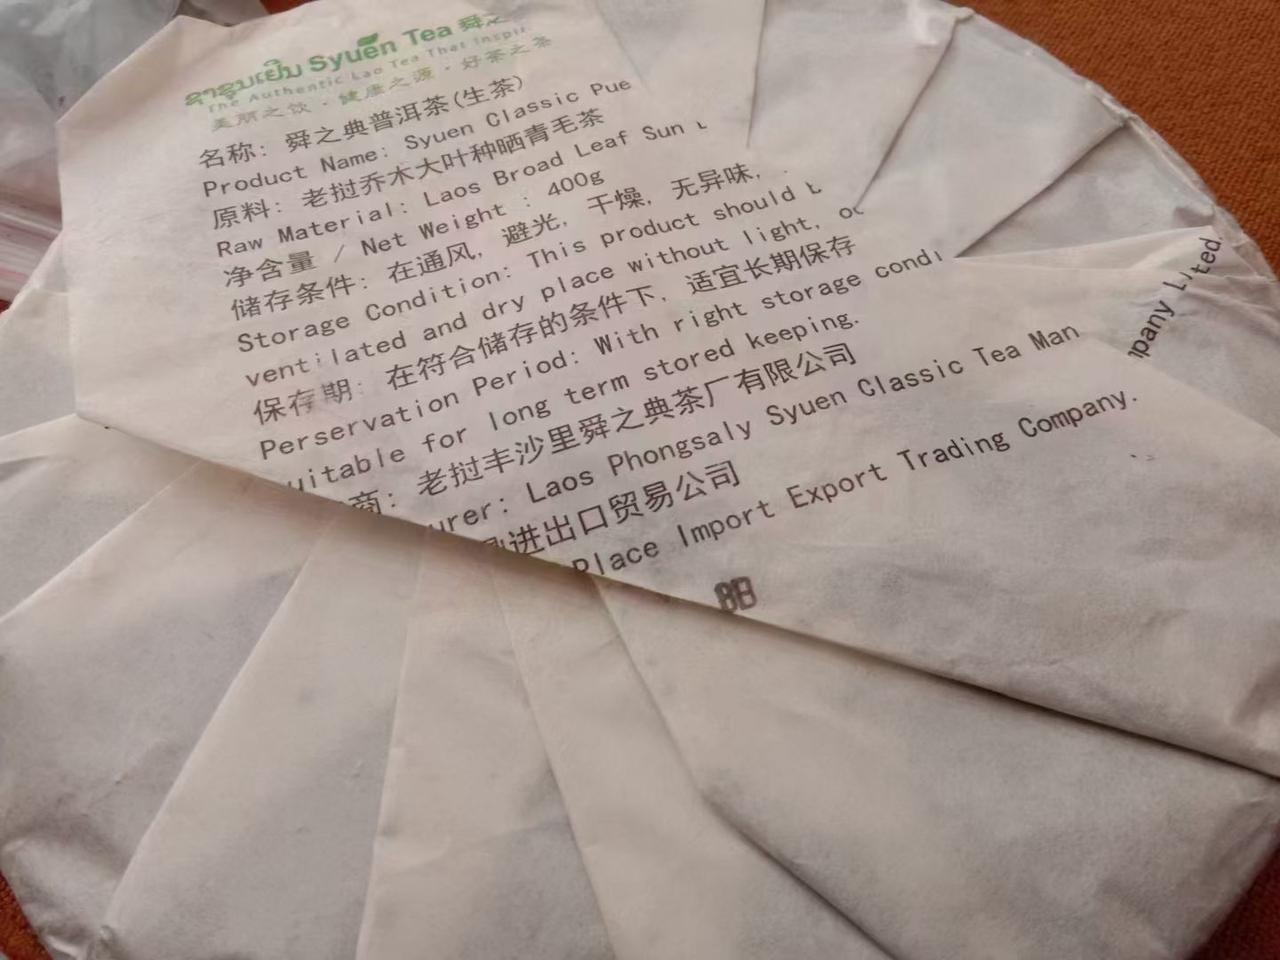 Syuen Tea 舜之
The Authentic Lao Tea That Inspir
美丽之饮 · 健康之源 · 好茶之茶
名称: 舜之典普洱茶(生茶)
Product Name: Syuen Classic Pue
原料: 老挝乔木大叶种晒青毛茶
Raw Material: Laos Broad Leaf Sun
净含量 / Net Weight : 400g
储存条件: 在通风, 避光, 干燥, 无异味,
Storage Condition: This product should
ventilated and dry place without light,
保存期: 在符合储存的条件下, 适宜长期保存
Perservation Period: With right storage condi
uitable for long term stored keeping.
商: 老挝丰沙里舜之典茶厂有限公司
urer: Laos Phongsaly Syuen Classic Tea Man
进出口贸易公司
Place Import Export Trading Company.
mpany Lited.
8B